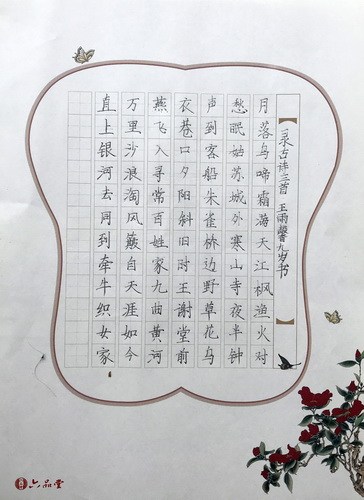 【录古诗三首 王雨馨九岁书】
月落乌啼霜满天江枫渔火对
愁眠姑苏城外寒山寺夜半钟
声到客船朱雀桥边野草花乌
衣巷口夕阳斜旧时王谢堂前
燕飞入寻常百姓家九曲黄河
万里沙浪淘风簸自天涯如今
直上银河去同到牵牛织女家
六品堂